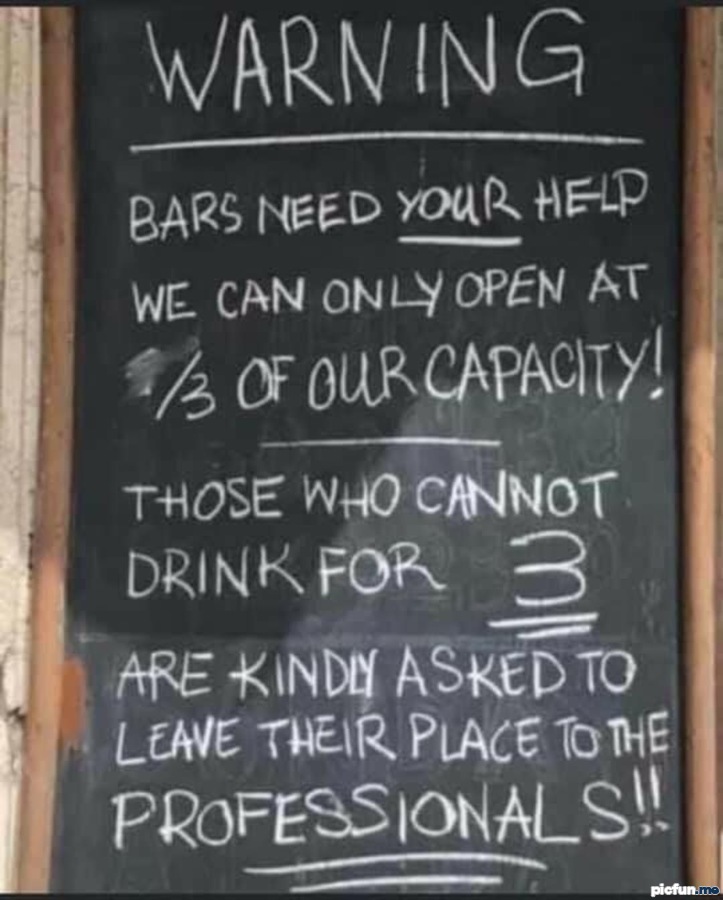 WARNING
BARS NEED YOUR HELP
WE CAN ONLY OPEN AT
1/3 OF OUR CAPACITY!
THOSE WHO CANNOT
DRINK FOR 3
ARE KINDLY ASKED TO
LEAVE THEIR PLACE TO THE
PROFESSIONALS!!
picfun.me